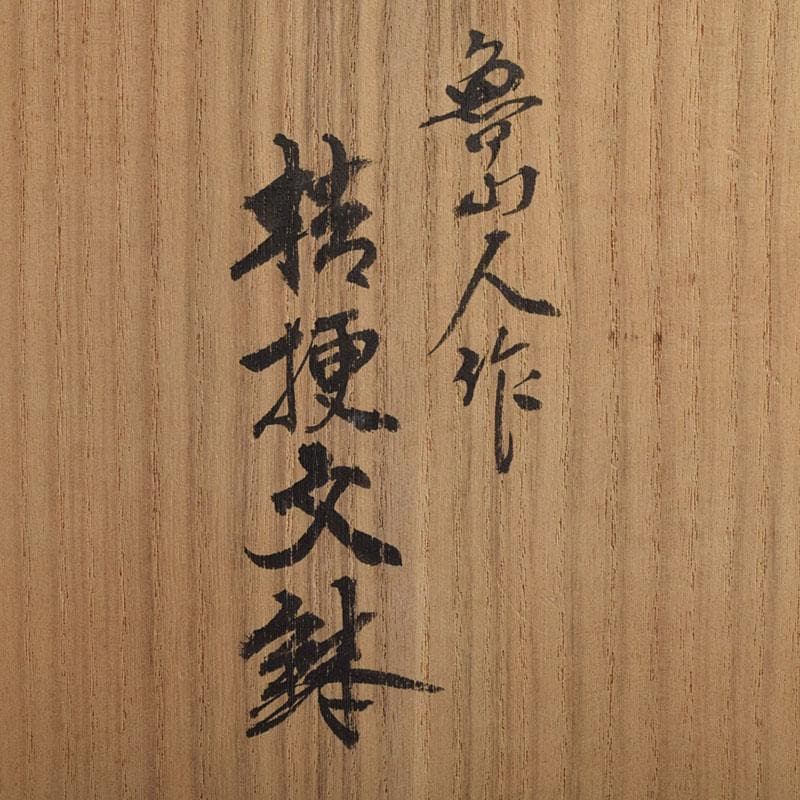 魯山人作
桔梗文鉢